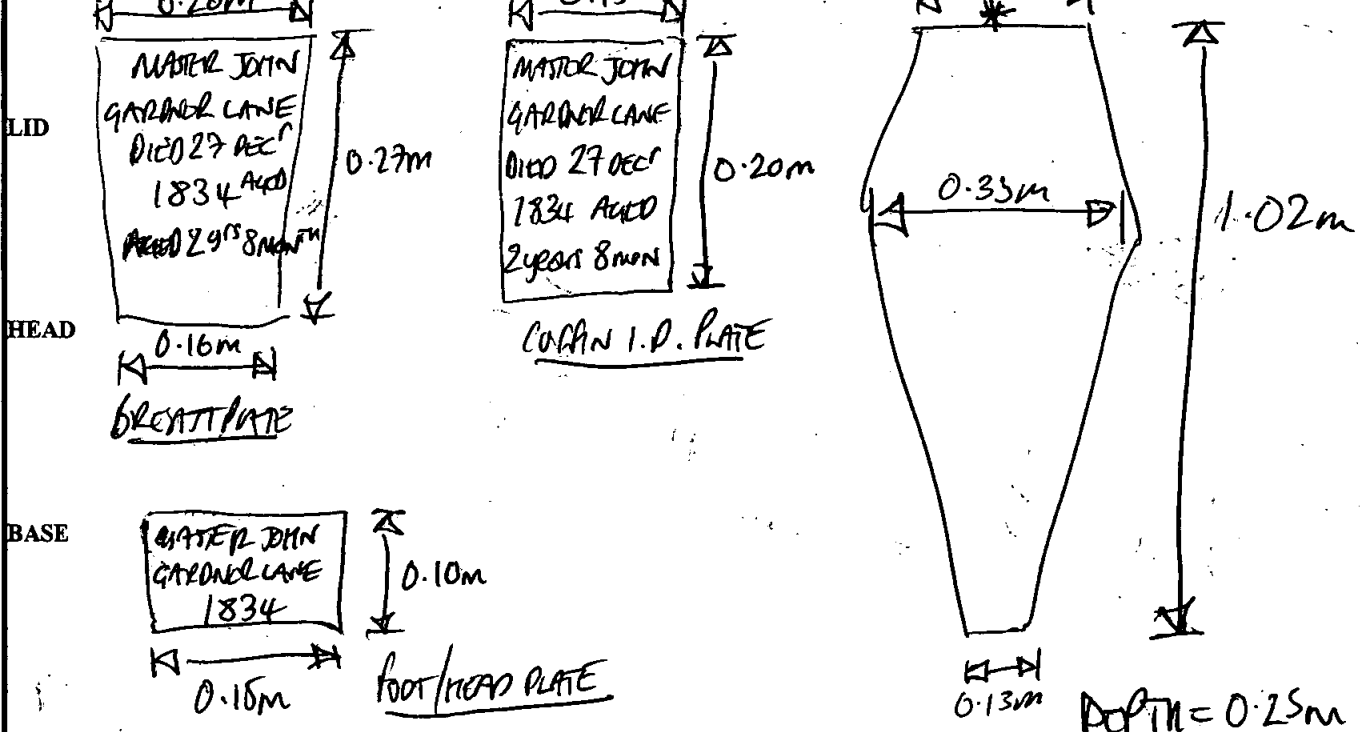 0.20m
LID
MASTER JOHN
GARDNOR LANE
DIED 27 DECr
1834 AGED
AGED 2yrs 8MONTH
0.27m
HEAD
0.16m
BREASTPLATE
MASTOR JOHN
GARDNOR LANE
DIED 27 DECr
1834 AGED
2years 8MON
0.20m
COFFIN I.D. PLATE
0.33m
1.02m
BASE
MASTER JOHN
GARDNOR LANE
1834
0.10m
0.15m
FOOT/HEAD PLATE
0.13m
DEPTH = 0.25m